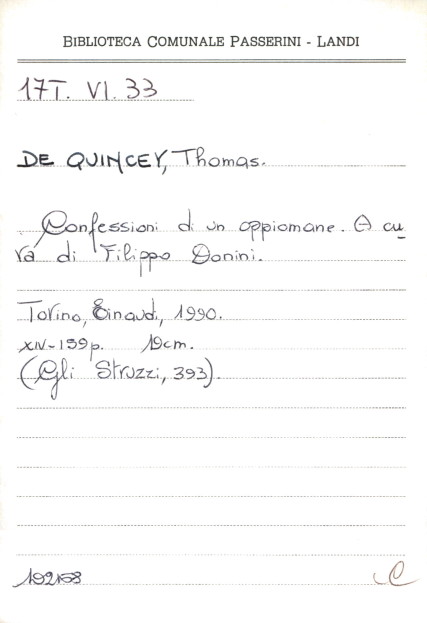 BIBLIOTECA COMUNALE PASSERINI - LANDI
17T. VI. 33
DE QUINCEY, Thomas.
Confessioni di un oppiomane. A cu
ra di Filippo Donini.
Torino, Einaudi, 1990.
XIV-139p. 19cm.
(Gli Struzzi, 393).
C